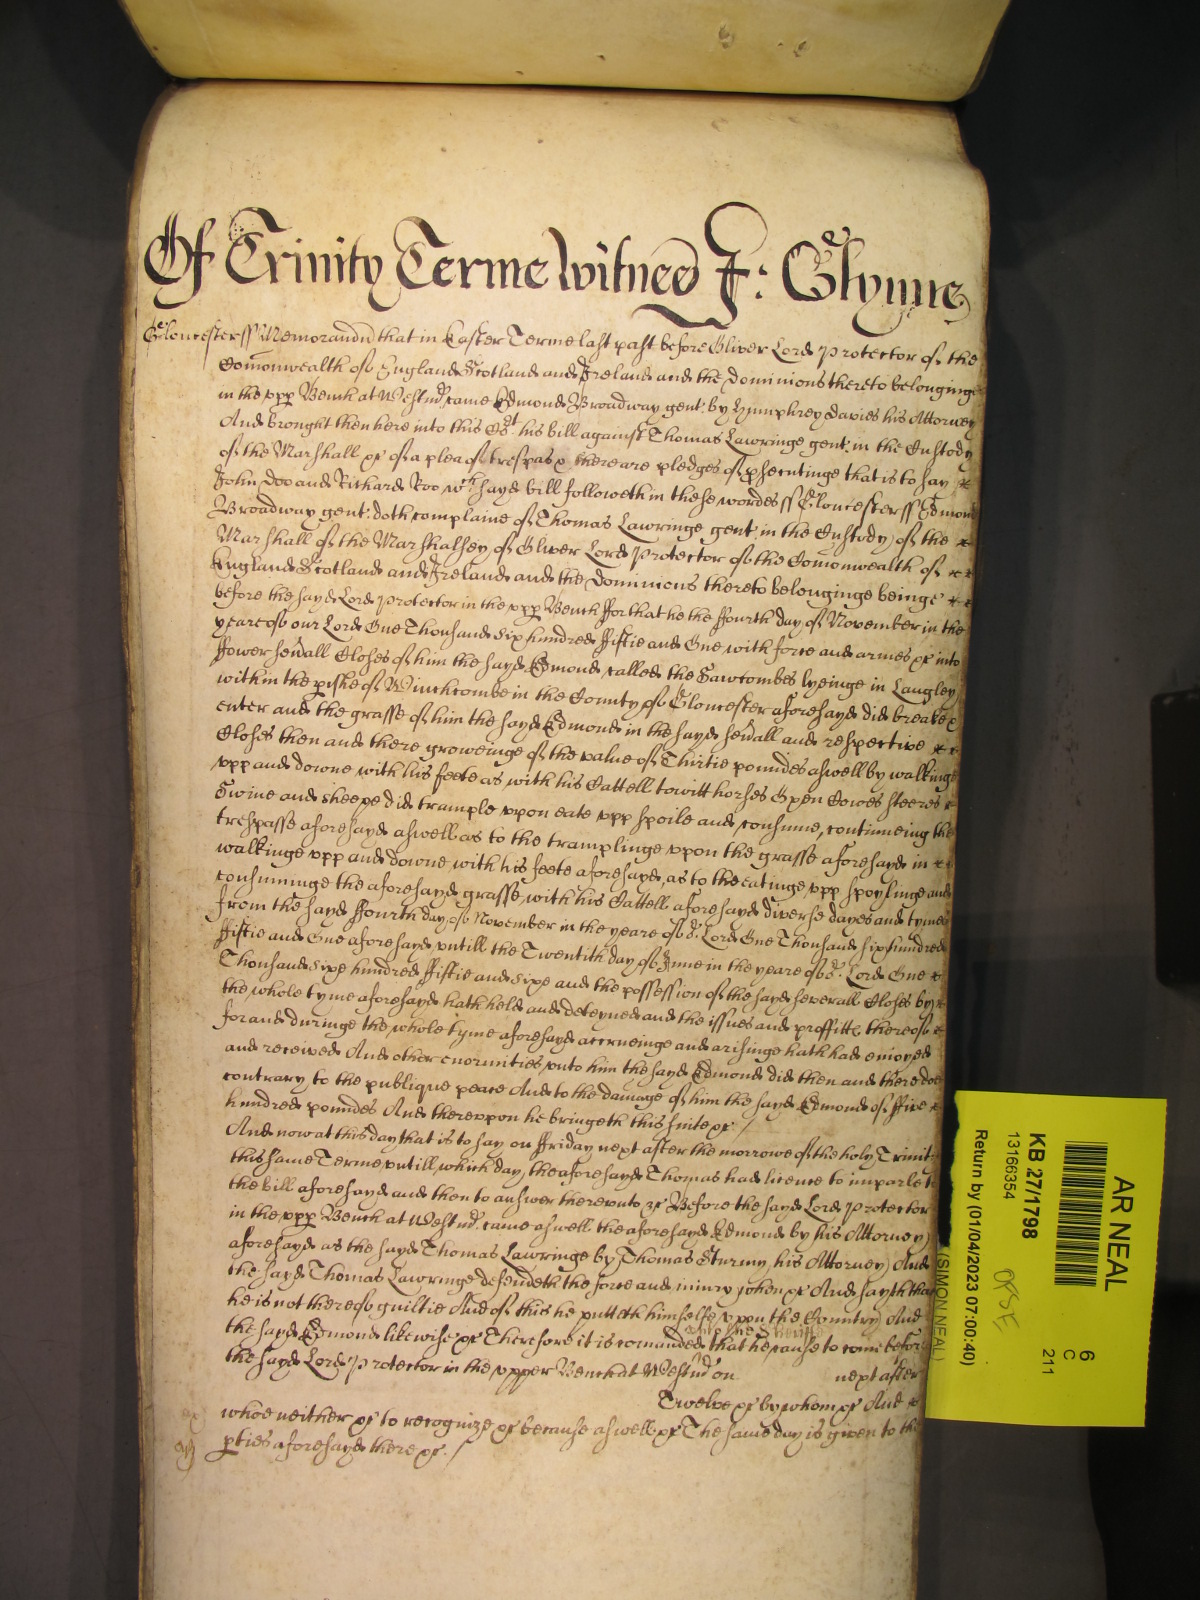 Of Trinity Terme Witnes J: Glynne
Gloucester ss Memorandu that in Easter Terme last past before Oliver Lord Protector of the
Comonwealth of England Scotland and Ireland and the Dominions thereto belonginge
in the upp Bench at Westmr came Edmond Broadway gent by Humphrey Davies his Attorney
And brought then here into this Cort his bill against Thomas Lawringe gent in the Custody
of the Marshall &c of a plea of trespas & there are pledges of psecutinge that is to say
John Doo and Richard Roo wch sayd bill followeth in these wordes ss Gloucester ss Edmond
Broadway gent doth complaine of Thomas Lawringe gent in the Custody of the
Marshall of the Marshalsey of Oliver Lord Protector of the Comonwealth of
England Scotland and Ireland and the Dominions thereto belonginge beinge
before the sayd Lord Protector in the upp Bench ffor that he the ffourth day of November in the
yeare of our Lord One Thousand six hundred ffiftie and One with force and armes &c into
ffower sevall Closes of him the sayd Edmond called the Sawcombes lyeinge in Langley
within the pishe of Winchcombe in the County of Gloucester aforesayd did breake &
enter and the grasse of him the sayd Edmond in the sayd sevall and respective
Closes then and there groweinge of the value of Thirtie poundes aswell by walkinge
upp and downe with his feete as with his Cattell towitt horses Oxen Cowes steeres
Swine and sheepe did trample upon eate upp spoile and consume, continueing the
trespasse aforesayd aswell as to the tramplinge upon the grasse aforesayd in
walkinge upp and downe with his feete aforesayd, as to the eatinge upp spoylinge and
consuminge the aforesayd grasse with his Cattell aforesayd diverse dayes and tymes
from the sayd ffourth day of November in the yeare of or Lord One Thousand six hundred
ffiftie and One aforesayd untill the Twentith day of June in the yeare of or Lord One
Thousand sixe hundred ffiftie and sixe and the possession of the sayd severall Closes by
the whole tyme aforesayd hath held and deteyned and the issues and proffitts thereof
for and duringe the whole tyme aforesayd accrueinge and arisinge hath had enioyed
and received And other enormities unto him the sayd Edmond did then and there doe
contrary to the publique peace And to the damage of him the sayd Edmond of ffive
hundred poundes And thereupon he bringeth this suite &c /
And now at this day that is to say on ffriday next after the morrowe of the holy Trinity
this same Terme untill which day the aforesayd Thomas had licence to imparle to
the bill aforesayd and then to answer thereunto &c Before the sayd Lord Protector
in the upp Bench at Westmr came aswell the aforesayd Edmond by his Attorney
aforesayd as the sayd Thomas Lawringe by Thomas Sturmy his Attorney And
the sayd Thomas Lawringe defendeth the force and iniury when &c And sayth that
he is not thereof guiltie And of this he putteth himselfe upon the Country And
the sayd Edmond likewise &c Therefore it is comanded that he cause to come before
the sayd Lord Protector in the upper Bench at Westmr on next after
Twelve &c by whom &c And
whoe neither &c to recognize &c because aswell &c The same day is given to the
pties aforesayd there &c. /
AR NEAL
KB 27/1798
13166354
Return by (01/04/2023 07:00:40)
(SIMON NEAL)
6
C
211